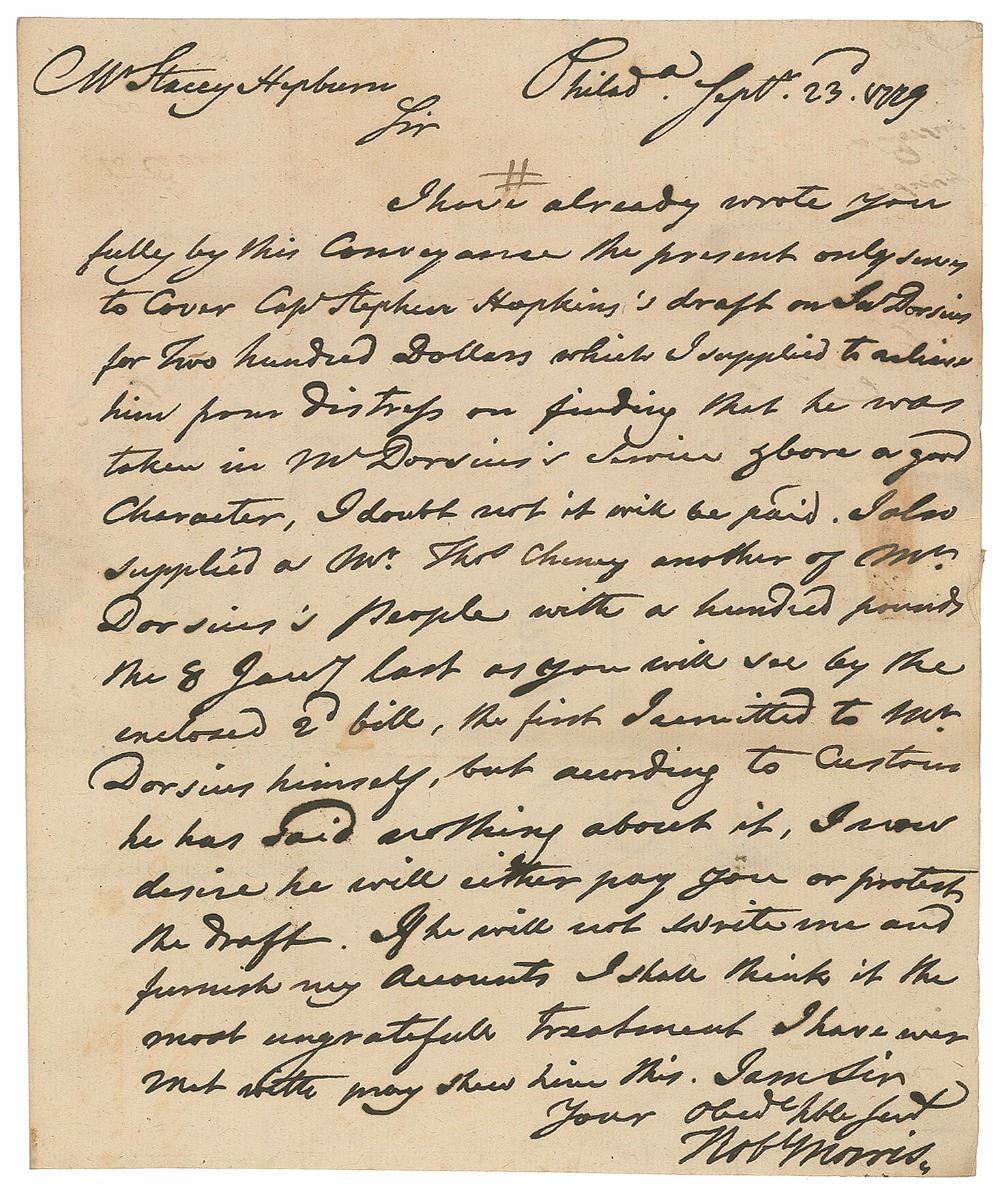 Mr Stacey Hepburn Philada. Septr. 23d. 1779
Sir
I have already wrote you
fully by this Conveyance the present only serves
to Cover Capt Stephen Hopkins's draft on Jno Dorsius
for Two hundred Dollars which I supplied to relieve
him from distress on finding that he was
taken in Mr Dorsius's Service & bore a good
Character, I doubt not it will be paid. I also
supplied a Mr. Thos Cheney another of Mr.
Dorsius's People with a hundred pounds
the 8 Jany last as you will see by the
enclosed 2d bill, the first I remitted to Mr.
Dorsius himself, but according to Custom
he has said nothing about it, I now
desire he will either pay you or protest
the draft. If he will not write me and
furnish my Accounts I shall think it the
most ungratefull treatment I have ever
met with pray shew him this. I am Sir
Your obedt hble servt
Robt Morris